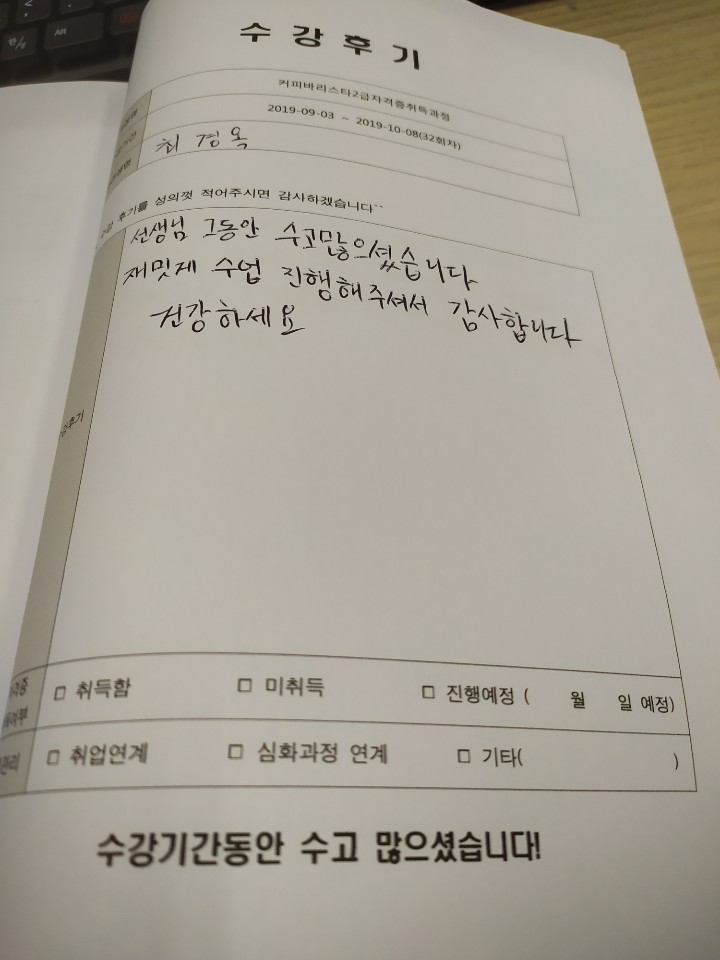 수 강 후 기
커피바리스타2급자격증취득과정
2019-09-03 ~ 2019-10-08(32회차)
최경옥
후기를 성의껏 적어주시면 감사하겠습니다~~
선생님 그동안 수고많으셨습니다
재밌게 수업 진행해주셔서 감사합니다
건강하세요
강후기
□ 취득함 □ 미취득 □ 진행예정 ( 월 일 예정)
□ 취업연계 □ 심화과정 연계 □ 기타( )
관리
수강기간동안 수고 많으셨습니다!
Alt